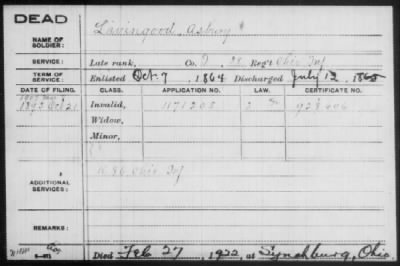 DEAD
NAME OF SOLDIER: Livingood, Asbury
SERVICE: Late rank, Co. I, 28 Reg't Ohio Inf
TERM OF SERVICE: Enlisted Oct. 7, 1864 Discharged July 12, 1865
DATE OF FILING. CLASS. APPLICATION NO. LAW. CERTIFICATE NO.
1892 Oct 21 Invalid, 1171205 928406
Widow,
Minor,
ADDITIONAL SERVICES: K 86 Ohio Inf
REMARKS:
Died Feb 27, 1922, at Lynchburg, Ohio